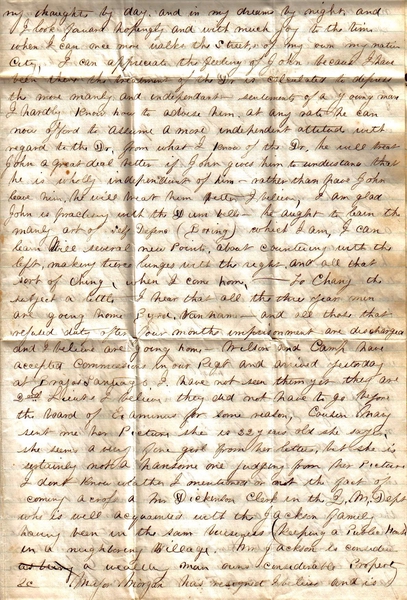 my thoughts by day, and in my dreams by night, and
I look forward hopingly and with much joy to the time
when I can once more walk the streets of my own my native
City, I can appreciate the feeling of John because I have
been there the treatment of the Dr is calculated to depress
the more manly and independent sentiments of a young man
I hardly know how to advise him, at any rate he can
now afford to assume a more independent attitude with
regard to the Dr, from what I know of the Dr, he will treat
John a great deal better if John gives him to understand that
he is wholly independent of him — rather than have John
leave him, he will treat him better I believe, I am glad
John is practicing with the Dum bells — he ought to learn the
manly art of Self Defens (Boxing) which I am, I can
learn Will several new Points, about countering with the
left, making tierce lunges with the right and all that
sort of thing, when I come home, — To Change the
subject a little — I hear that all the three year men
are going home Pyne, Van Ham — and all those that
refused duty after four months imprisonment are discharged
and I believe are going home Wilson and Camp have
accepted Commissions in our Regt and arrived yesterday
at I have not seen them yet they are
2nd Lieuts I believe — they did not have to go before
the Board of Examiners for some reason, Cousin Mary
sent me her Picture she is 22 years old she says,
she seems a very fine girl from her letter, but she is
certainly not a handsome one judging from her Picture
I dont know whether I mentioned or not the fact of
coming across a Mr Dickinson Clerk in the Q, M, Dept
who is well acquainted with the Jackson family
having been in the same business (Keeping a Public House
in a neighboring Village. Mr Jackson is considered
as being a wealthy man owns considerable Property
&c Major Morgan has resigned I believe and is